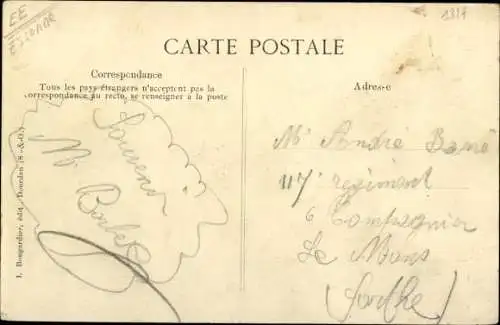 EE
1914
CARTE POSTALE
Correspondance
Tous les pays étrangers n'acceptent pas la
correspondance au recto, se renseigner à la poste
Adresse
Souvenir
M
I. Bougardier, édit., Dourdan (S.-&-O.)
Mr André
117e regiment
6 Compagnier
Le Mans
(Sarthe)